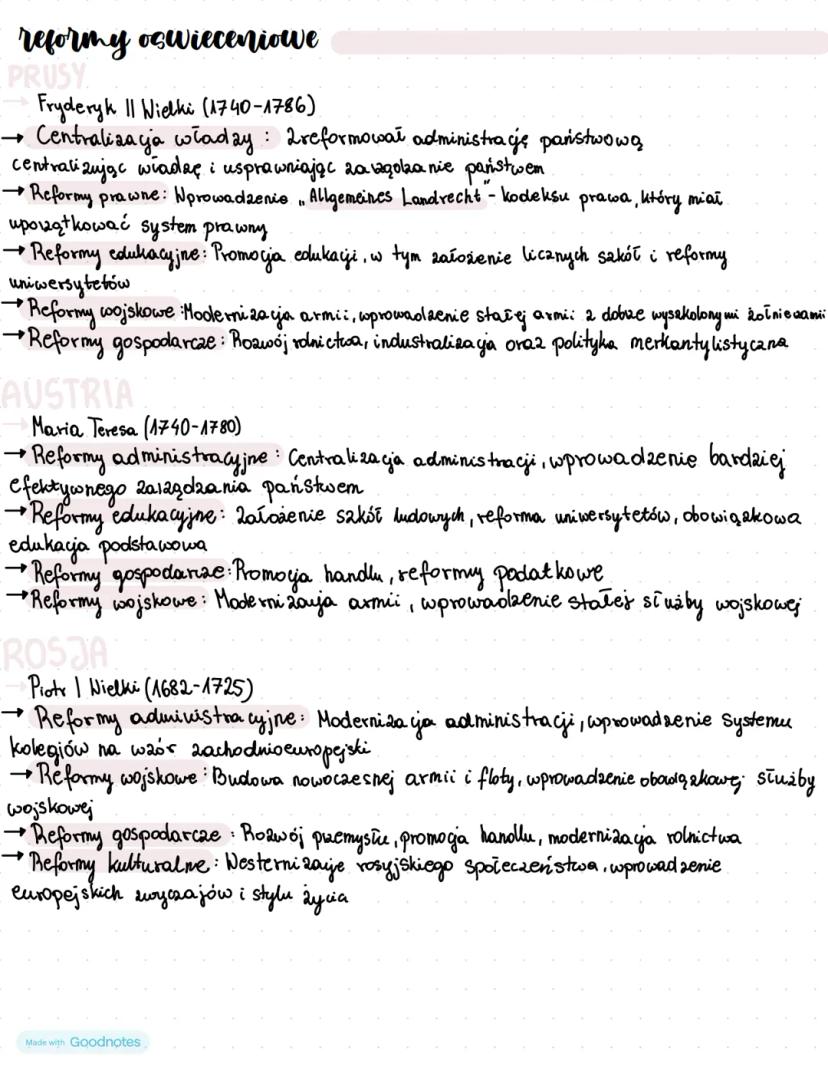 reformy oświeceniowe
PRUSY
→ Fryderyk II Wielki (1740-1786)
→ Centralizacja władzy : Zreformował administrację państwową
centralizując władzę i usprawniając zarządzanie państwem
→ Reformy prawne: Wprowadzenie „Allgemeines Landrecht" - kodeksu prawa, który miał
uporządkować system prawny
→ Reformy edukacyjne: Promocja edukacji, w tym założenie licznych szkół i reformy
uniwersytetów
→ Reformy wojskowe : Modernizacja armii, wprowadzenie stałej armii z dobrze wyszkolonymi żołnierzami
→ Reformy gospodarcze : Rozwój rolnictwa, industralizacja oraz polityka merkantylistyczna
AUSTRIA
→ Maria Teresa (1740-1780)
→ Reformy administracyjne : Centralizacja administracji, wprowadzenie bardziej
efektywnego zarządzania państwem
→ Reformy edukacyjne: Założenie szkół ludowych, reforma uniwersytetów, obowiązkowa
edukacja podstawowa
→ Reformy gospodarcze: Promocja handlu, reformy podatkowe
→ Reformy wojskowe : Modernizacja armii, wprowadzenie stałej służby wojskowej
ROSJA
→ Piotr I Wielki (1682-1725)
→ Reformy administracyjne: Modernizacja administracji, wprowadzenie systemu
kolegiów na wzór zachodnioeuropejski
→ Reformy wojskowe : Budowa nowoczesnej armii i floty, wprowadzenie obowiązkowej służby
wojskowej
→ Reformy gospodarcze : Rozwój przemysłu, promocja handlu, modernizacja rolnictwa
→ Reformy kulturalne : Westernizacje rosyjskiego społeczeństwa, wprowadzenie
europejskich zwyczajów i stylu życia
Made with Goodnotes